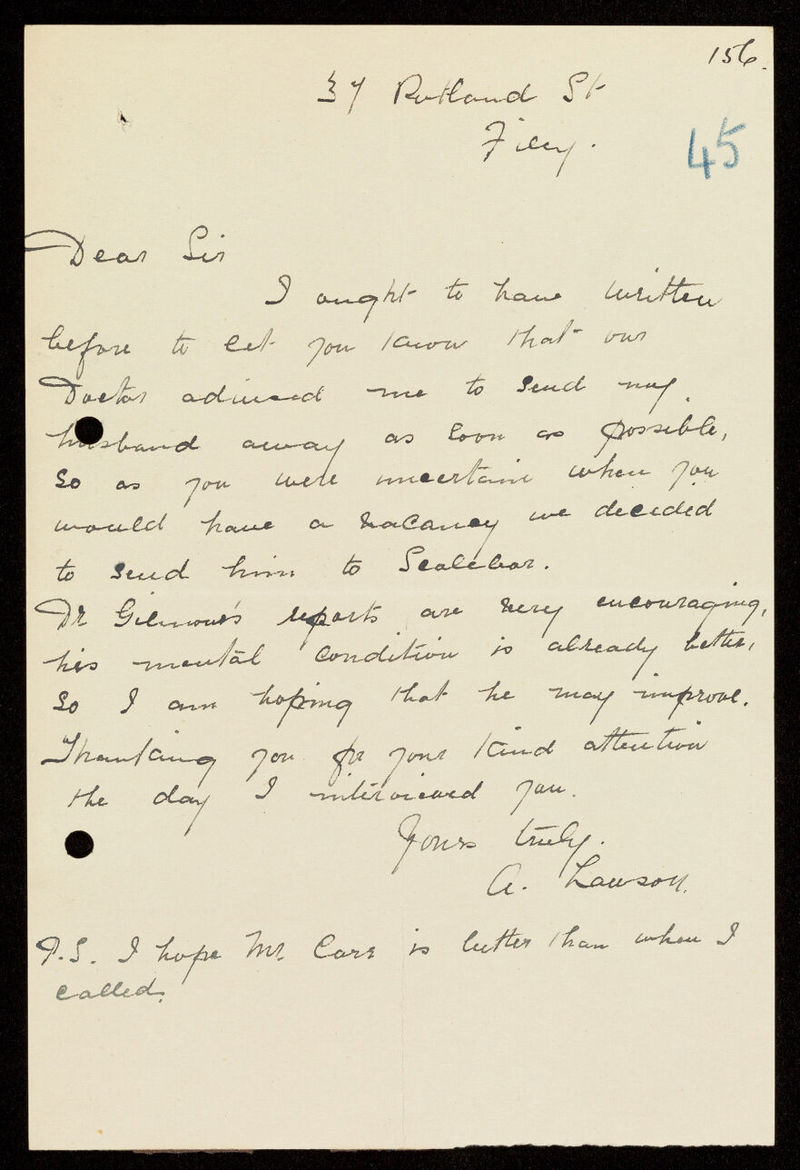 156.
37 Rutland St
Filey.
45
Dear Sir
I ought to have written
before to let you know that our
Doctor advised me to send my
husband away as soon as possible,
so as you were uncertain when you
would have a vacancy we decided
to send him to Scalebor.
Dr Gilmour's reports are very encouraging,
his mental condition is already better,
so I am hoping that he may improve.
Thanking you for your kind attention
the day I interviewed you.
Yours truly.
A. Lawson.
P.S. I hope Mr. Carr is better than when I
called.